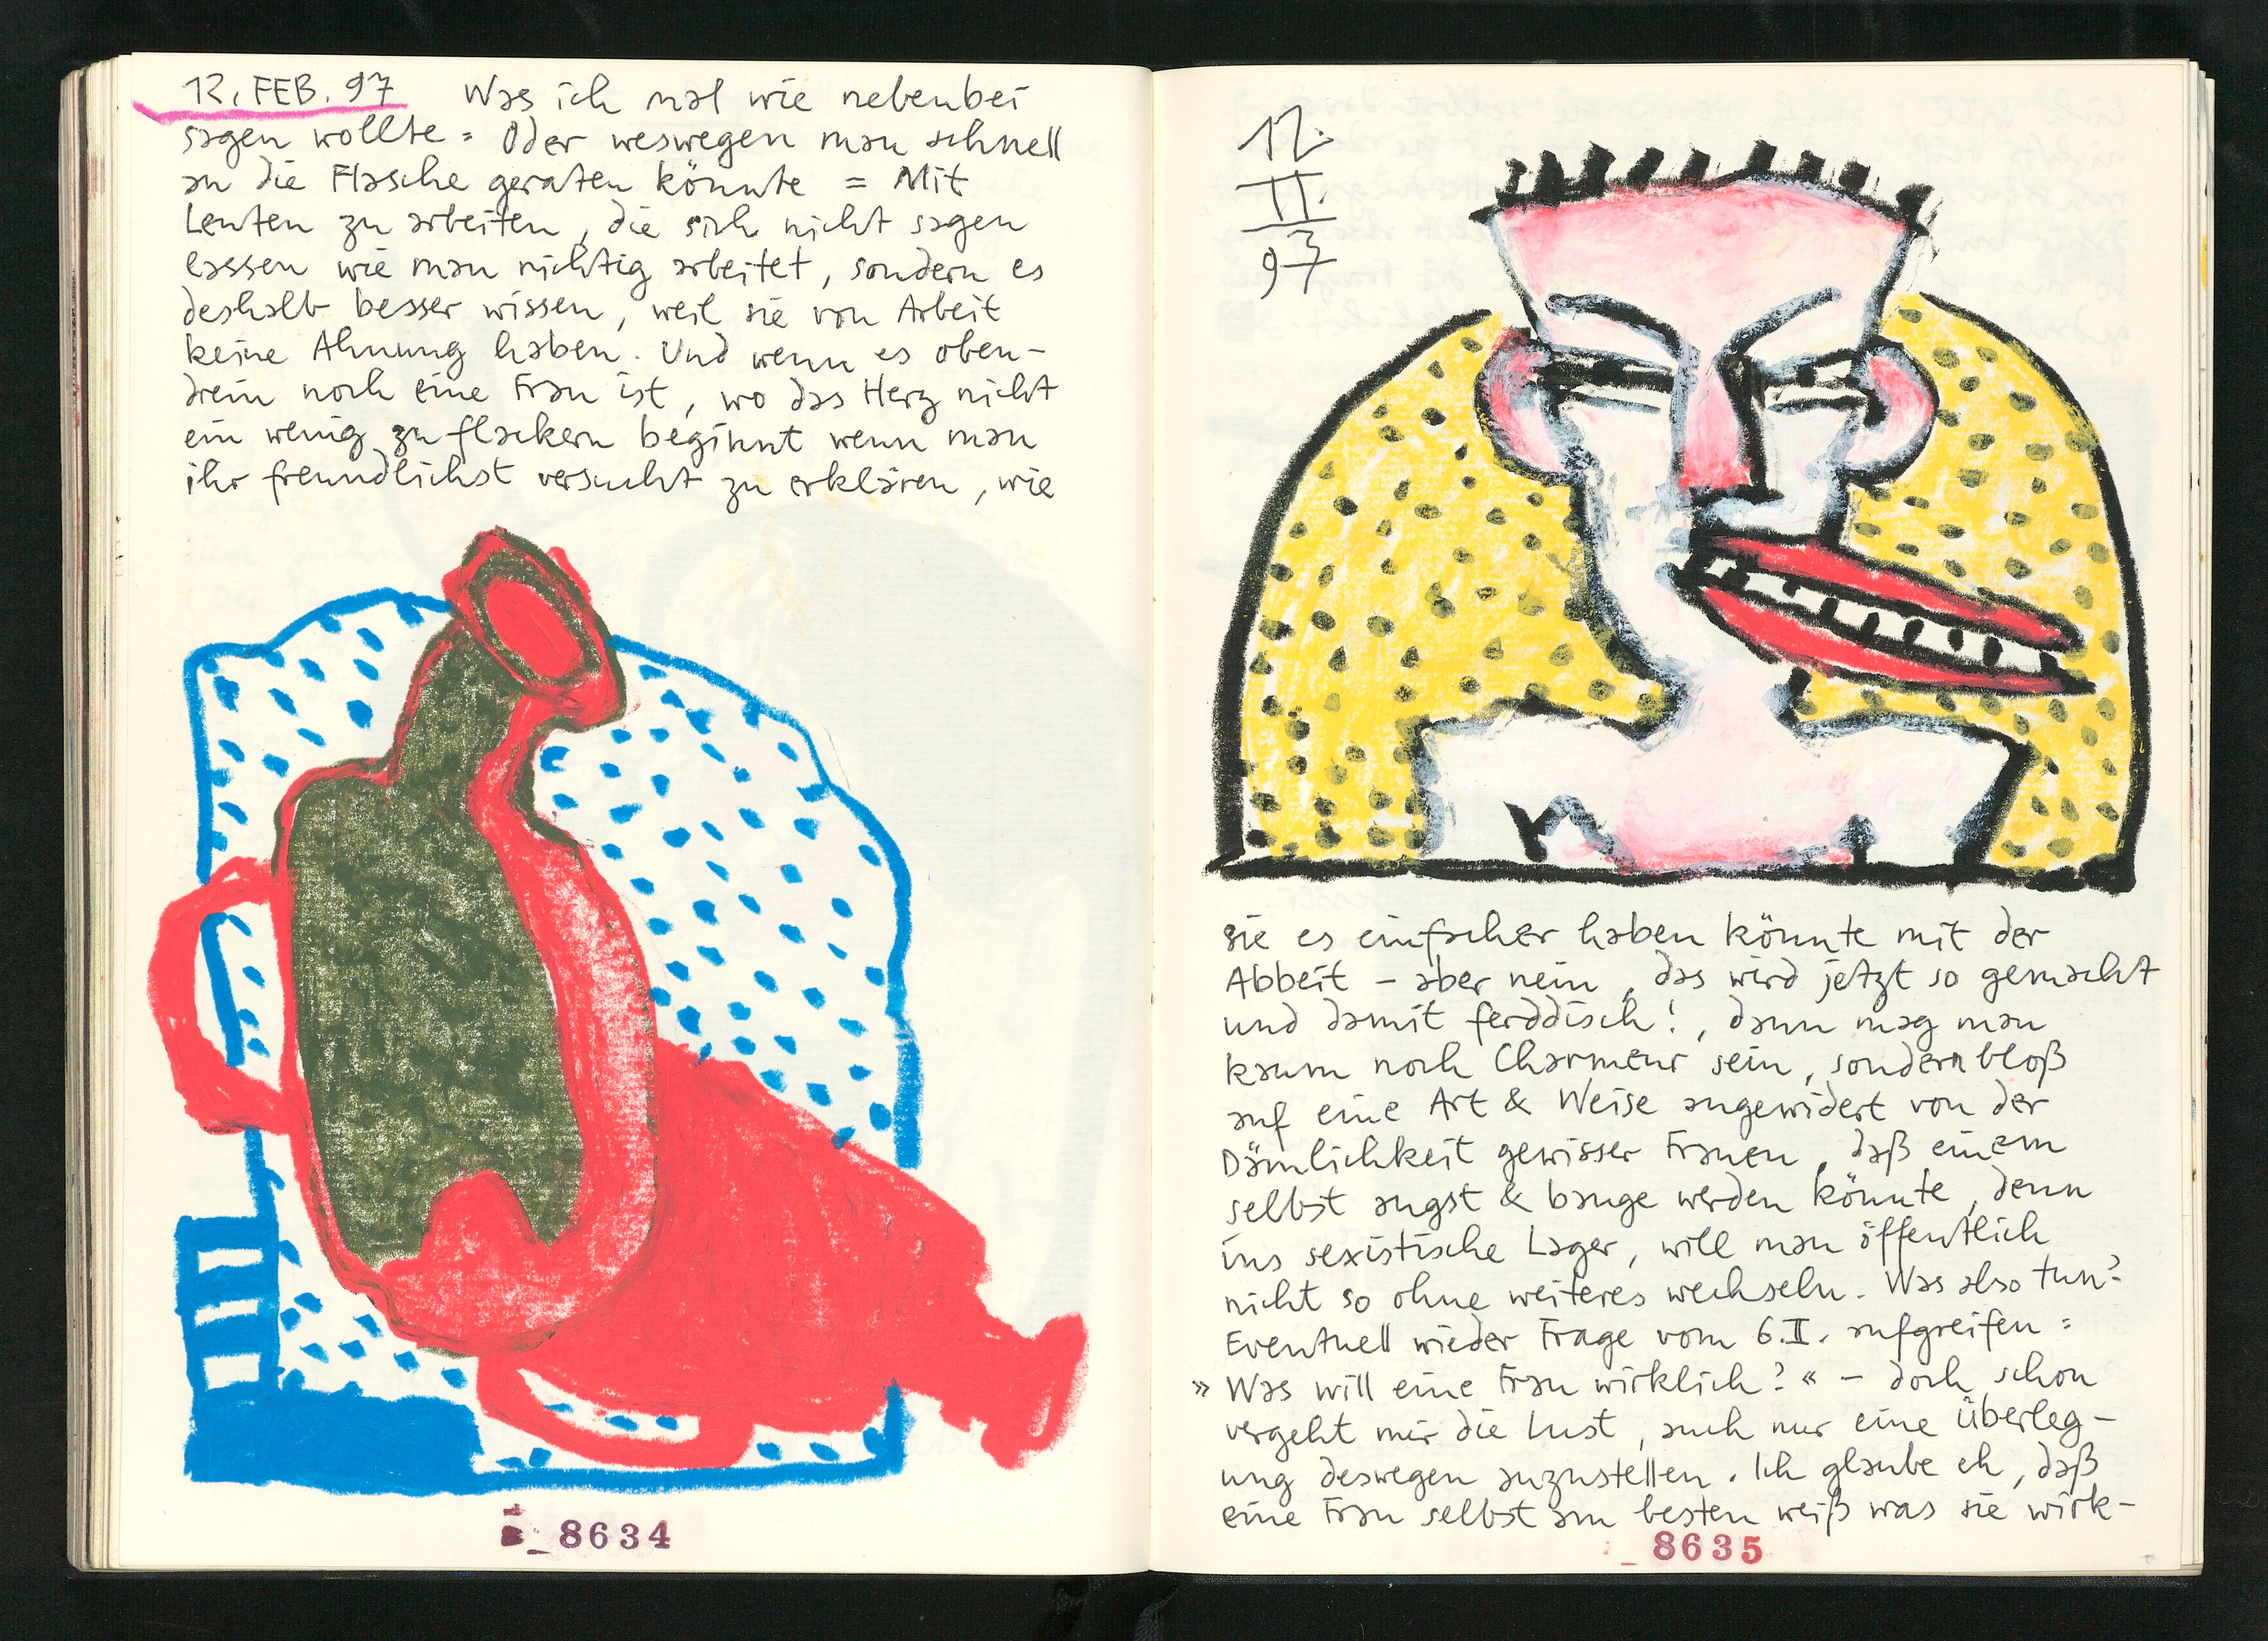 12. FEB. 97 Was ich mal wie nebenbei
sagen wollte = Oder weswegen man schnell
an die Flasche geraten könnte = Mit
Leuten zu arbeiten, die sich nicht sagen
lassen wie man richtig arbeitet, sondern es
deshalb besser wissen, weil sie von Arbeit
keine Ahnung haben. Und wenn es oben-
drein noch eine Frau ist, wo das Herz nicht
ein wenig zu flackern beginnt wenn man
ihr freundlichst versucht zu erklären, wie
8634
12.
II
97
sie es einfacher haben könnte mit der
Abbeit – aber nein, das wird jetzt so gemacht
und damit ferddisch!, dann mag man
kaum noch Charmeur sein, sondern bloß
auf eine Art & Weise angewidert von der
Dämlichkeit gewisser Frauen, daß einem
selbst angst & bange werden könnte, denn
ins sexistische Lager, will man öffentlich
nicht so ohne weiteres wechseln. Was also tun?
Eventuell wieder Frage vom 6.II. aufgreifen:
»Was will eine Frau wirklich?« – doch schon
vergeht mir die Lust, auch nur eine Überleg-
ung deswegen anzustellen. Ich glaube eh, daß
eine Frau selbst am besten weiß was sie wirk-
8635